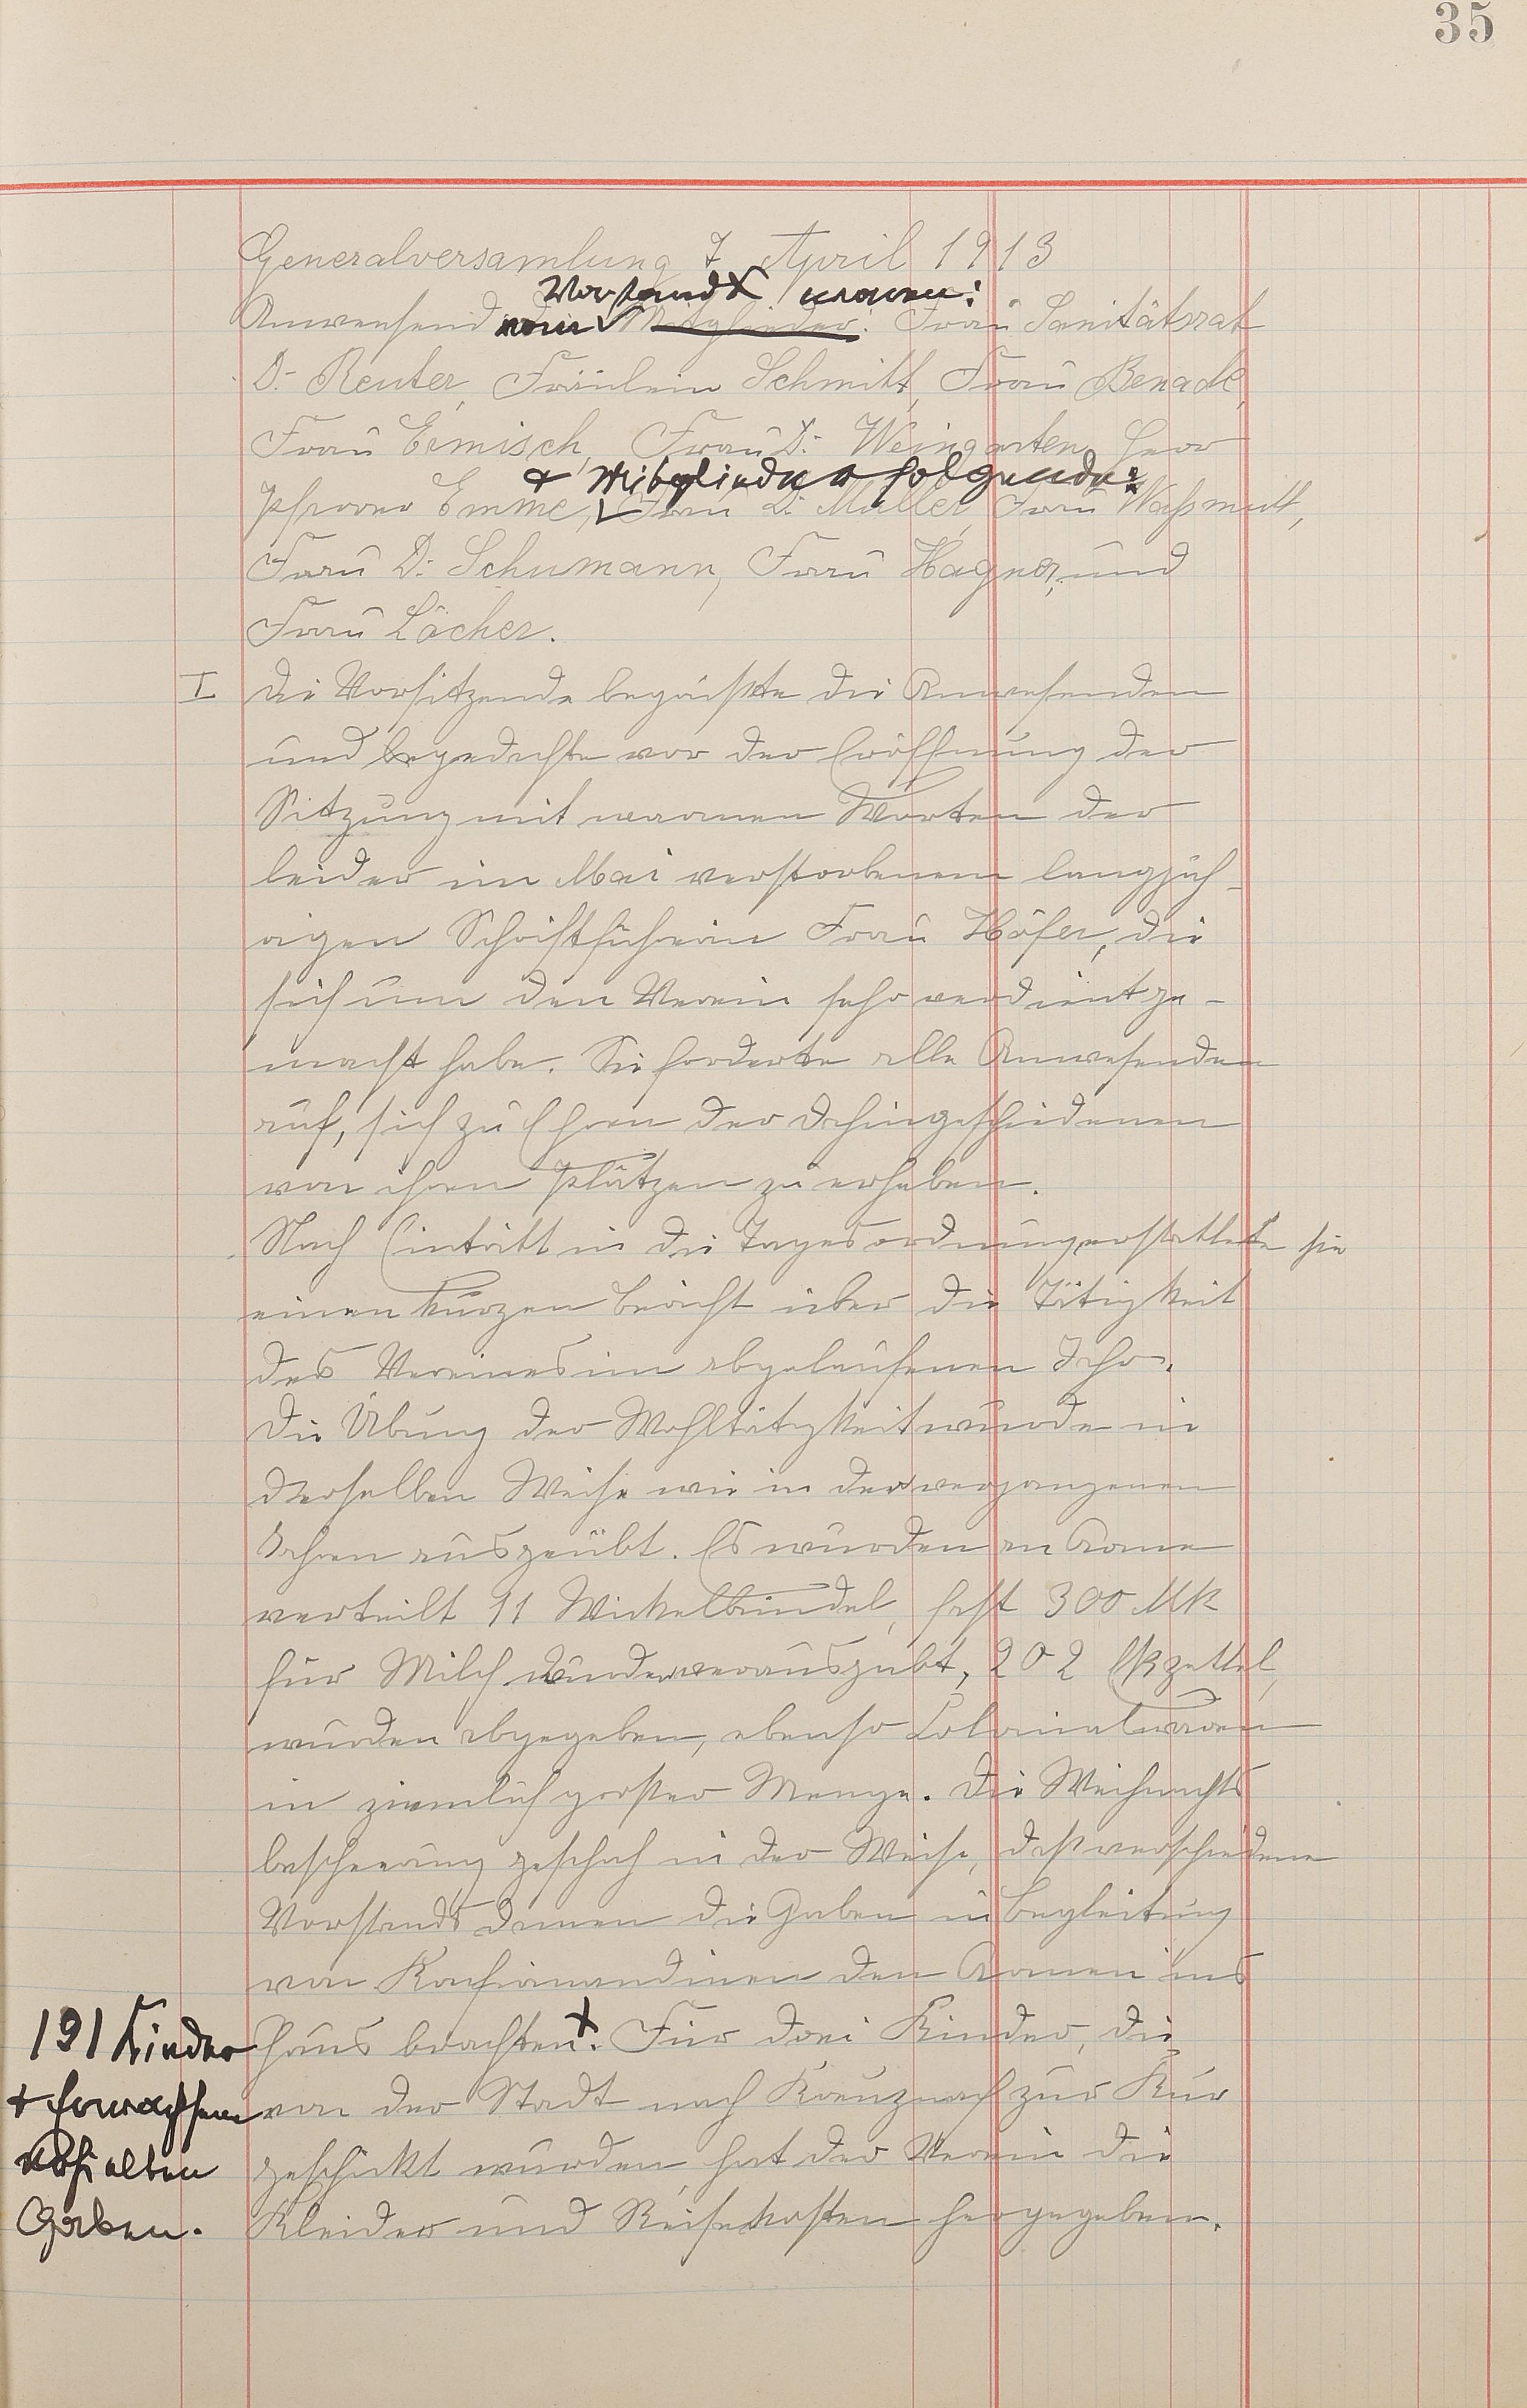 35
Generalversamlung 7 April 1913
Vorstand waren:
Anwensend vom Mitglieder: Frau Sanitätsrat
Dr. Reuter, Fräulein Schmitt, Frau Benack,
Frau Ermisch, Frau Dr. Weingarten, Herr
+ Mitglieder folgende:
Pfarrer Emme, Frau Dr. Müller, Frau Waßmutt,
Frau Dr. Schumann, Frau Hagner, und
Frau Löcher.
I die Vorsitzende begrüßte die Anwesenden
und gedachte vor der Eröffnung der
Sitzung mit warmen Worten der
leider im Mai verstorbenen langjäh-
rigen Schriftführerin Frau Höfer, die
sich um den Verein sehr verdient ge-
macht habe. Sie forderte alle Anwesenden
auf, sich zu Ehren der Dahingeschiedenen
von ihren Plätzen zu erheben.
Nach Eintritt in die Tagesordnung erstattete sie
einen kurzen Bericht über die Tätigkeit
des Vereines im abgelaufenen Jahr.
Die Übung der Wohltätigkeit wurde in
derselben Weise wie in den vergangenen
Jahren ausgeübt. Es wurden an Arme
verteilt 11 Wickelbündel, fast 300 Mk
für Milch wurden verausgabt, 202 Eßzettel,
wurden abgegeben, ebenso Colonialwaren
in ziemlich großer Menge. Die Weihnachts
bescheerung geschah in der Weise, daß verschiedene
Vorstands damen die Gaben in Begleitung
von Konfirmandinnen den Armen ins
Haus brachten. x Für drei Kinder, die
von der Stadt nach Kreuznach zur Kur
geschickt wurden, hat der Verein die
Kleider und Reisekosten hergegeben.
191 Kinder
+ Erwachsene
erhielten
Gaben.